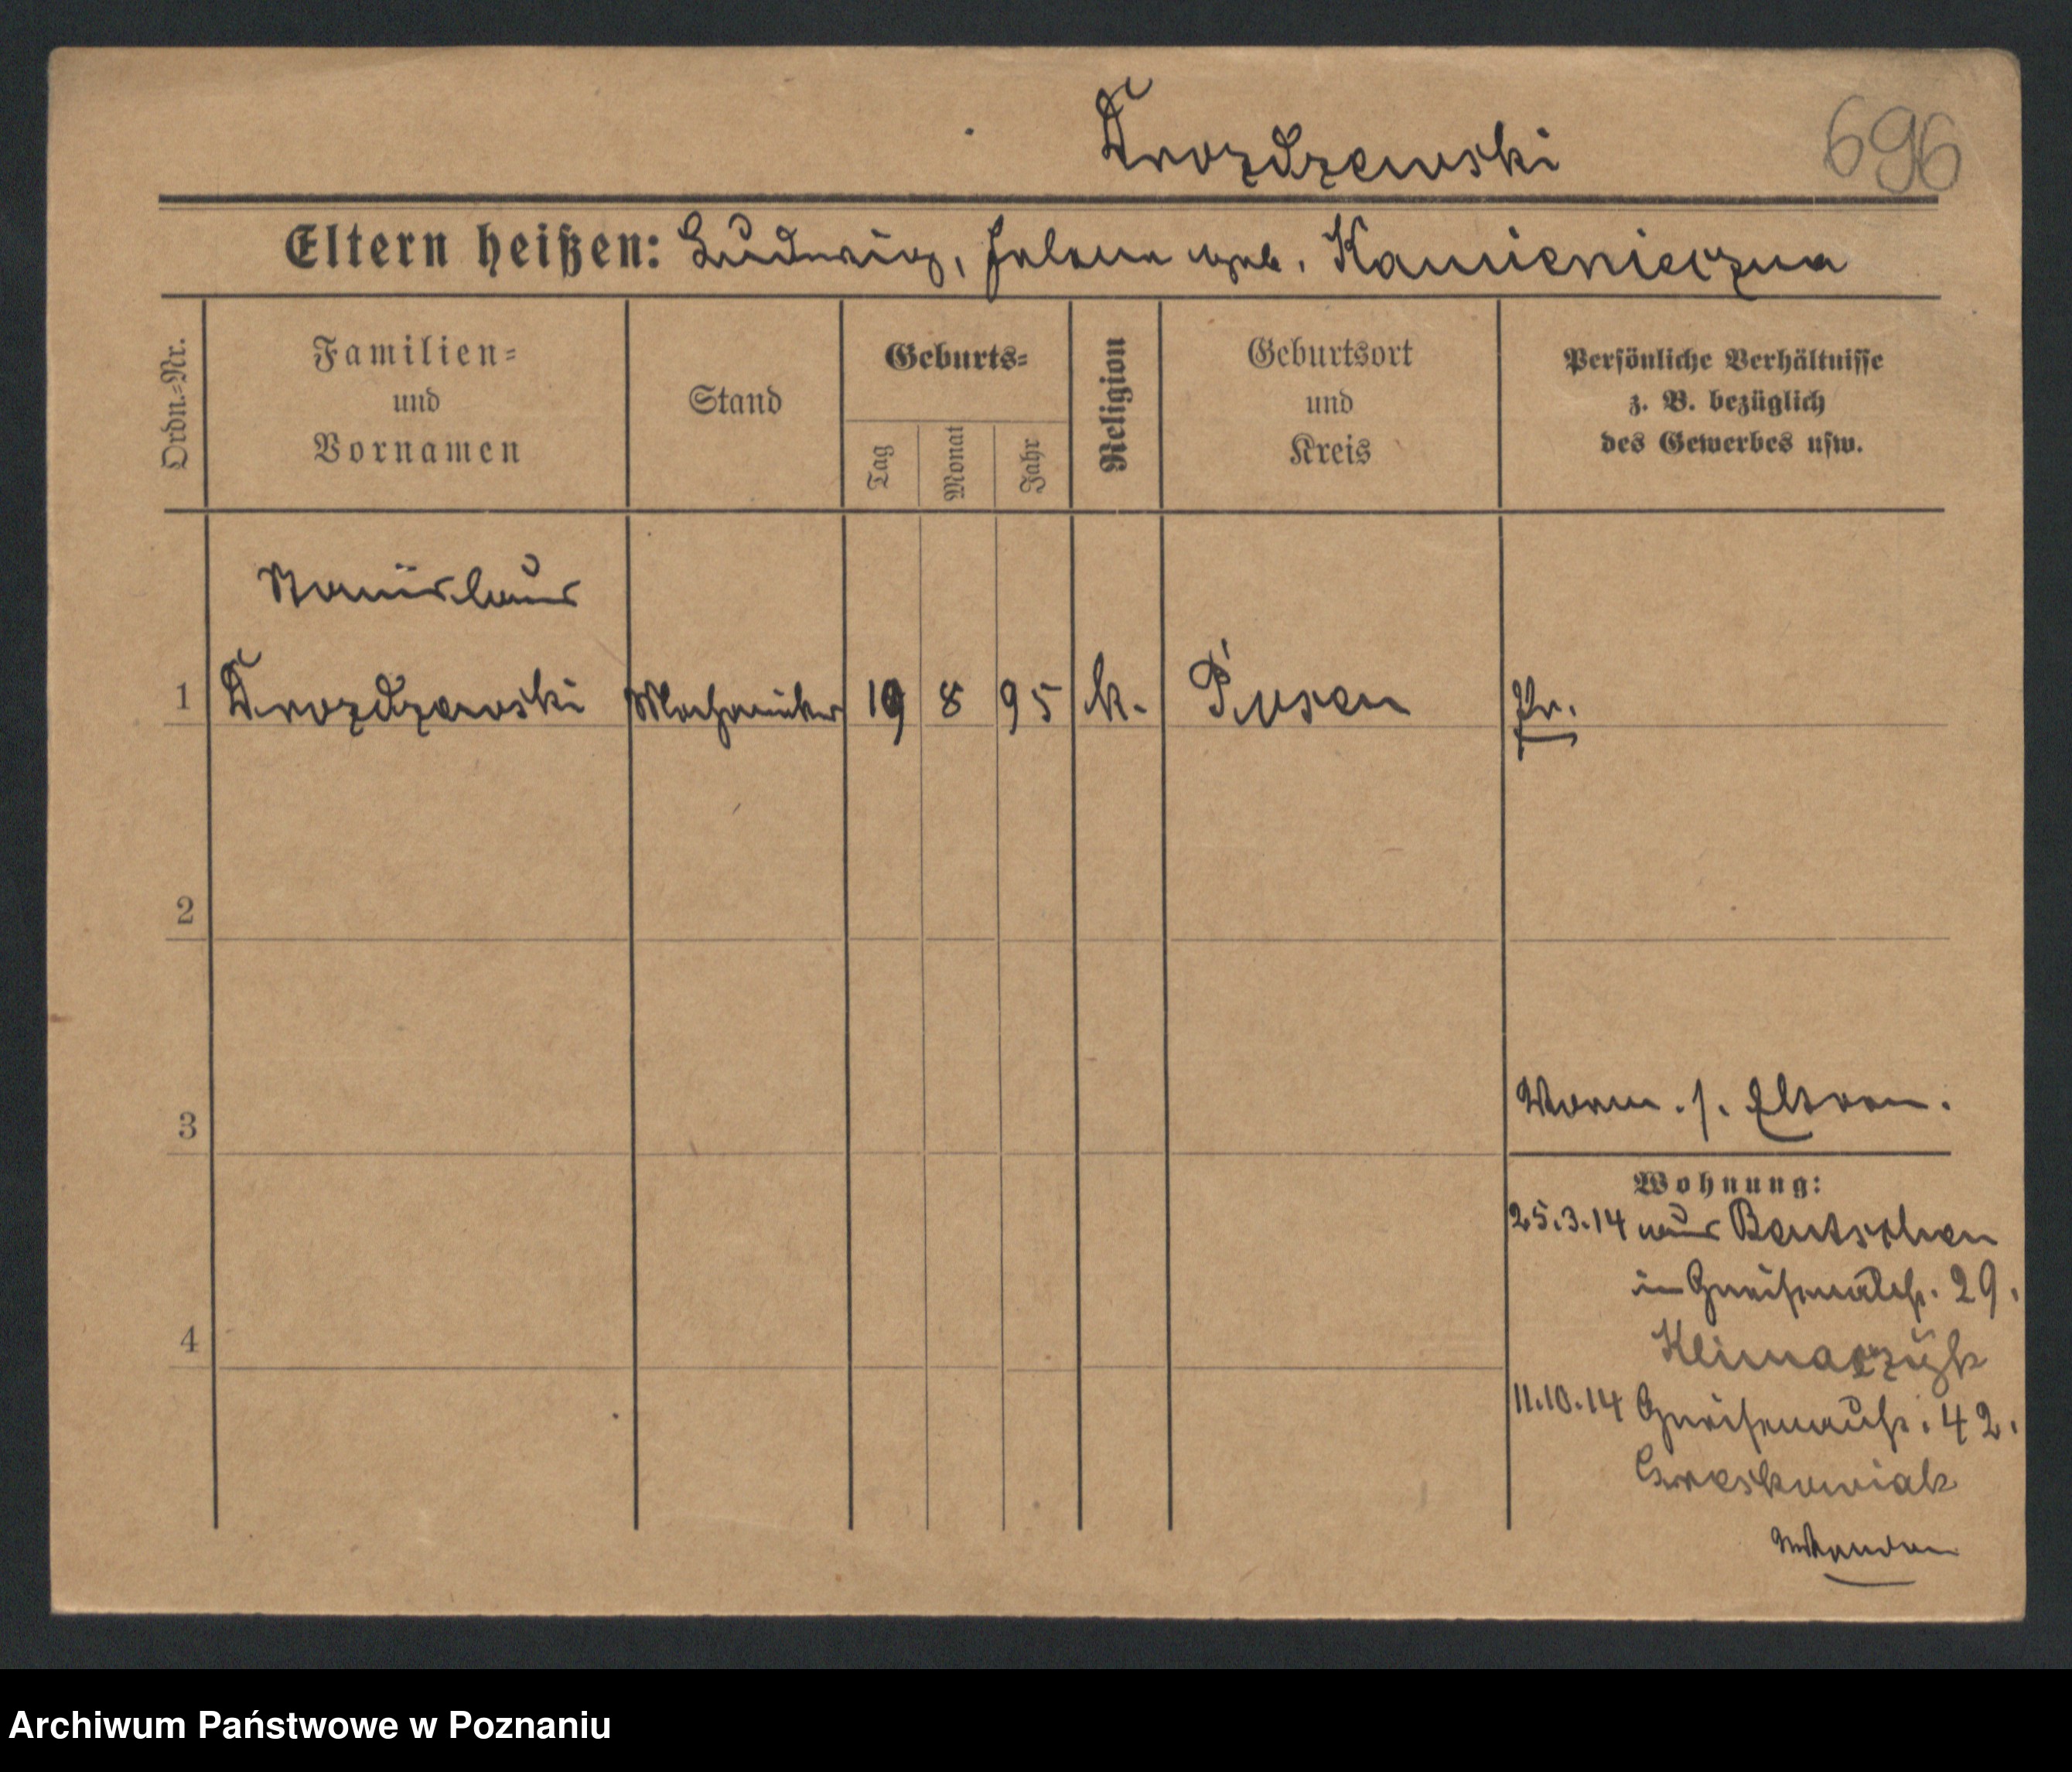 Drozdzewski
696
Eltern heißen: Ludwig, Helene geb. Kamienieczna
Ordn.-Nr.
Familien-
und
Vornamen
Stand
Geburts-
Tag
Monat
Jahr
Religion
Geburtsort
und
Kreis
Persönliche Verhältnisse
z. B. bezüglich
des Gewerbes usw.
Stanislaus
1 Drozdzewski Mechaniker 19 8 95 k. Posen Pr.
2
3
Vorm. s. Eltern.
Wohnung:
25.3.14 aus Bentschen
in Gneisenaustr. 29.
4
11.10.14 Gneisenaustr. 42.
Archiwum Państwowe w Poznaniu